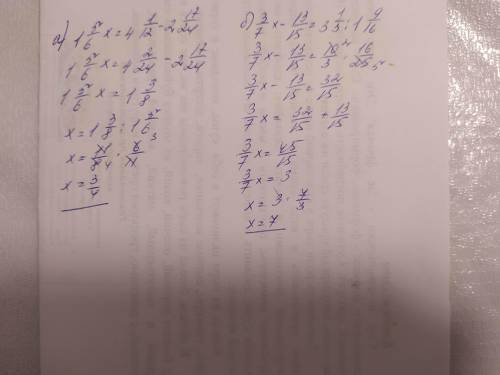 а) 1 5/6 x = 4 1/12 - 2 17/24
1 5/6 x = 4 2/24 - 2 17/24
1 5/6 x = 1 3/8
x = 1 3/8 : 1 5/6
x = 11/8 4 · 6 3/11
x = 3/4
б) 3/7 x - 13/15 = 3 1/3 : 1 9/16
3/7 x - 13/15 = 10 2/3 · 16/25 5 =
3/7 x - 13/15 = 32/15
3/7 x = 32/15 + 13/15
3/7 x = 45/15
3/7 x = 3
x = 3 · 7/3
x = 7